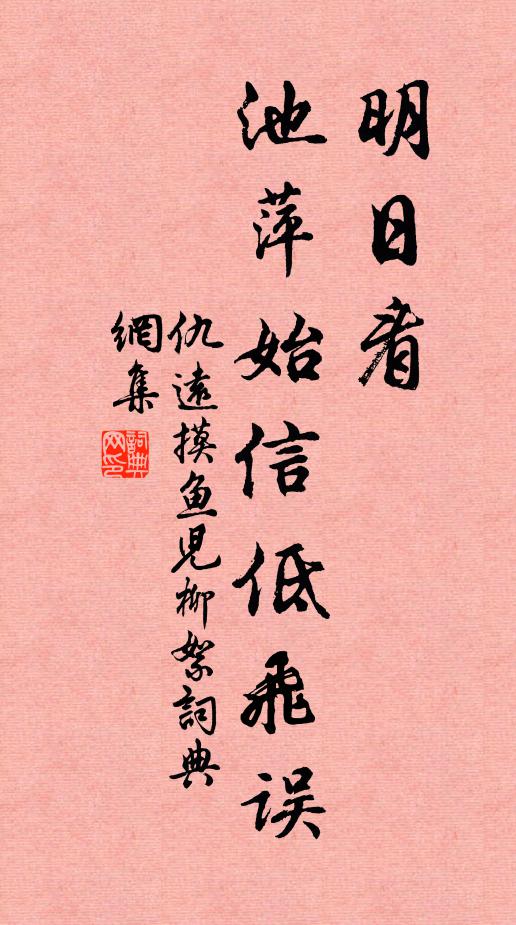 明日看
池萍始信低飛误
仇遠摸魚児柳絮詞典
網集
詞典网印